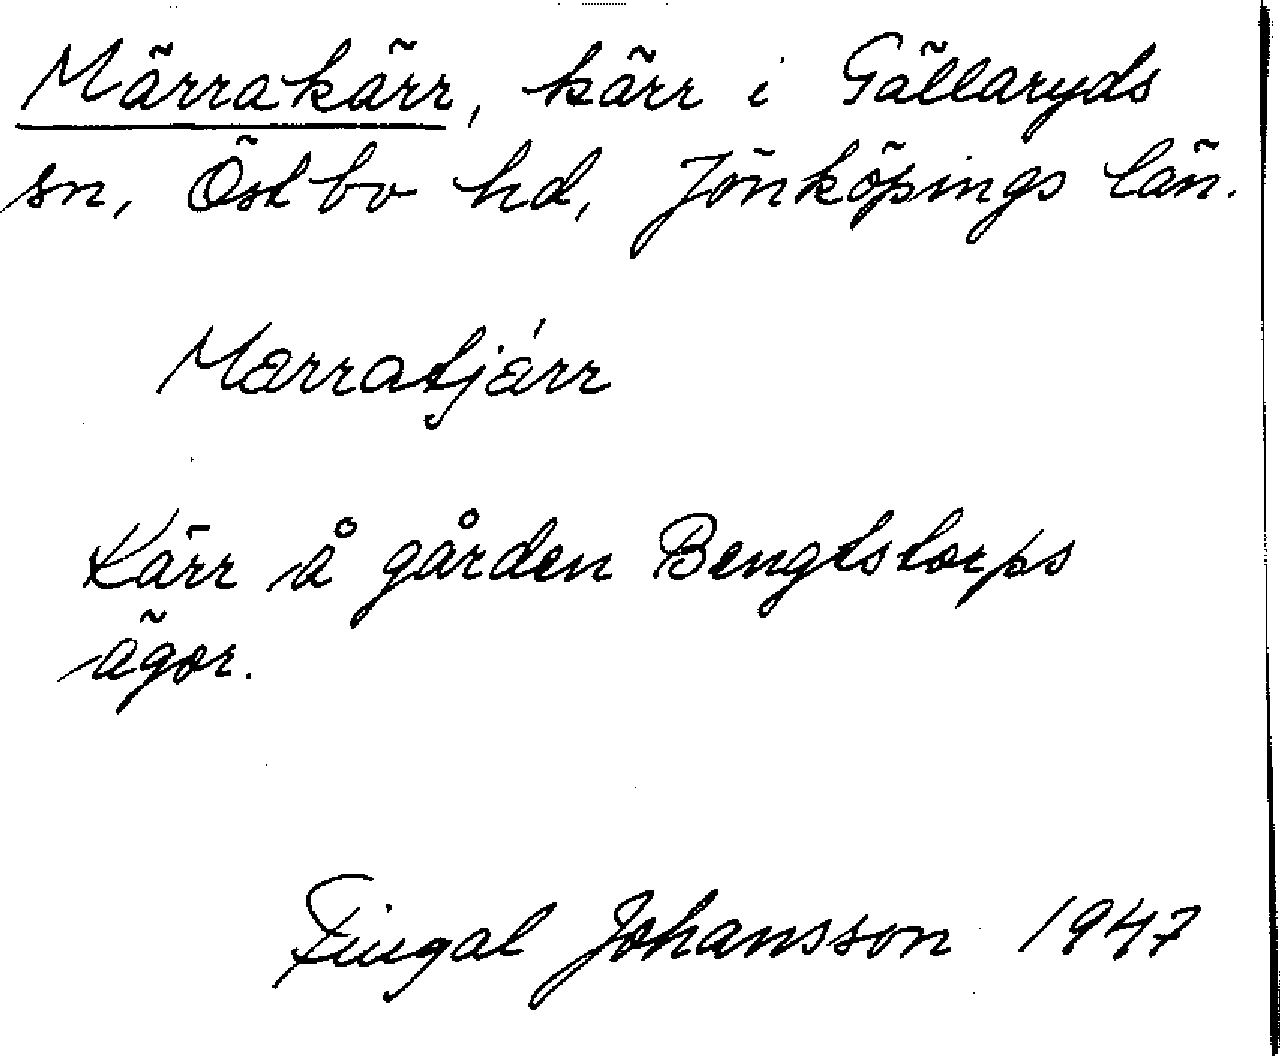 Märrakärr, kärr i Gällaryds
sn, Östbo hd, Jönköpings län.
Marratjárr
Kärr å gården Bengtstorps
ägor.
Fingal Johansson 1947